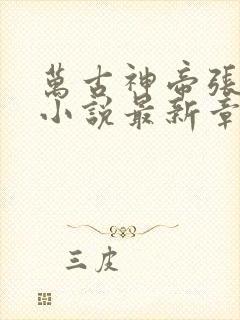 萬古神帝張
小說最新章
三皮